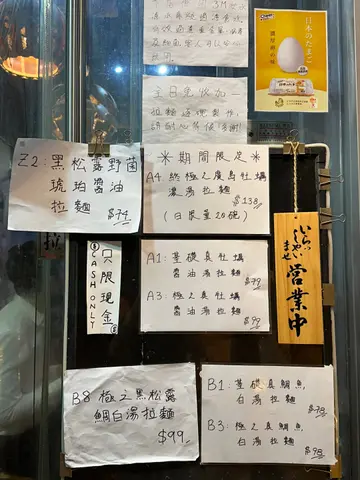 全日免收加一
拉麵逐碗製作,
請耐心等候,多謝!
日本のたまご
Z2:黑松露野菌
琥珀醬油
拉麵
＊期間限定＊
A4 終極之廣島牡蠣
濃湯拉麵
$138
(日限量20碗)
A1:基礎真牡蠣
醬油湯拉麵
A3:極之真牡蠣
醬油湯拉麵
$99
只限現金
CASH ONLY
いらっしゃいませ
営業中
B8 極之黑松露
鯛白湯拉麵
$99
B1:基礎真鯛魚
白湯拉麵
$78
B3:極之真鯛魚
白湯拉麵
$98